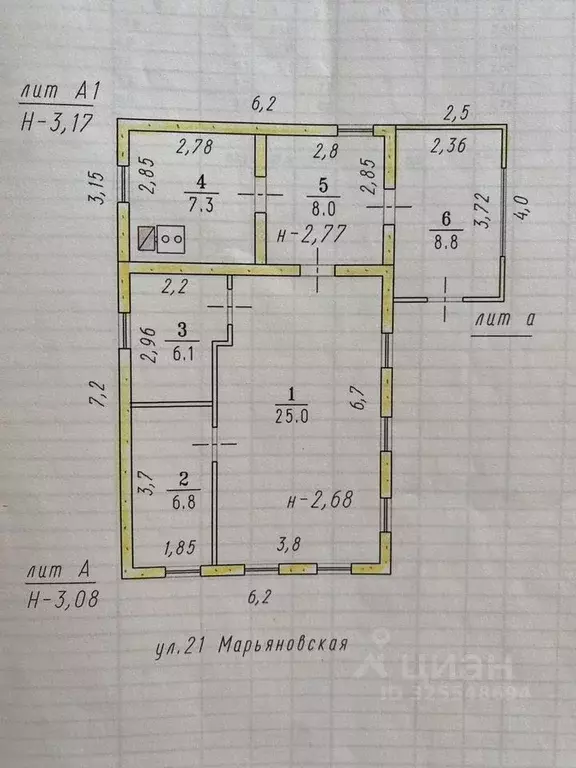 лит А1
Н-3,17
6,2
2,5
2,78
2,8
2,36
3,15
2,85
4
7.3
5
8.0
2,85
6
8.8
3,72
4,0
н-2,77
2,2
лит а
3
6.1
2,96
7,2
1
25.0
6,7
3,7
2
6.8
н-2,68
1,85
3,8
лит А
Н-3,08
6,2
ул.21 Марьяновская
ЦИАН
ID 325548694